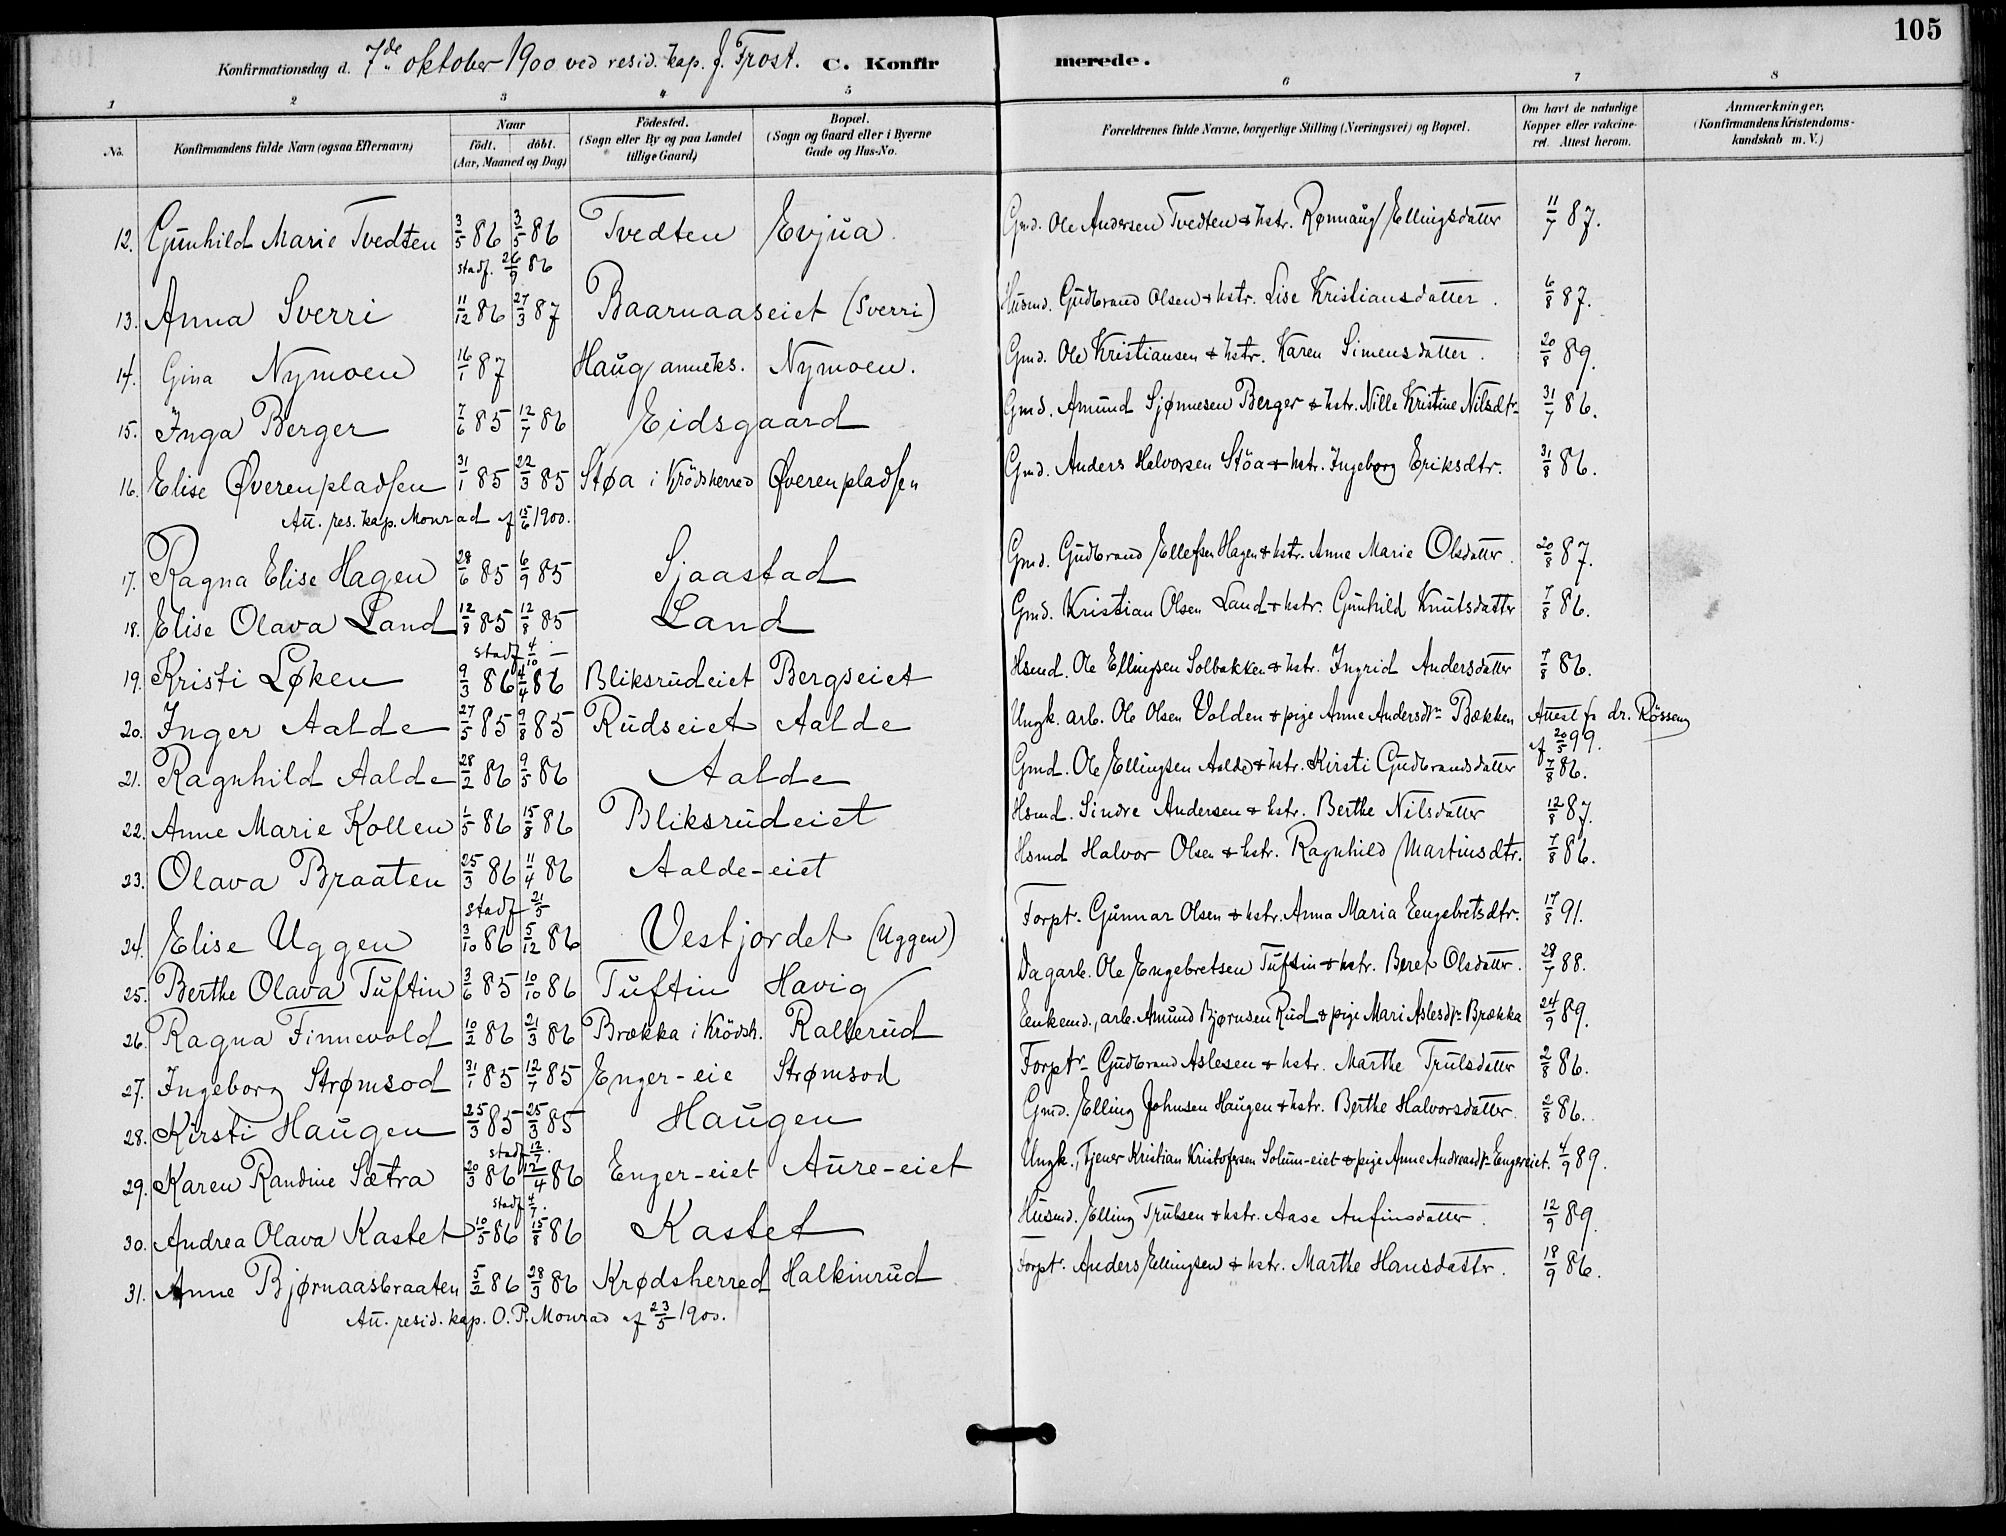 105
Konfirmationsdag d. 7de oktober 1900 ved resid. kap. J. Frost. C. Konfirmerede.
1 2 3 4 5 6 7 8
No. Konfirmandens fulde Navn (ogsaa Efternavn) Naar født. døbt. (Aar, Maaned og Dag) Fødested. (Sogn eller By og paa Landet tillige Gaard) Bopæl. (Sogn og Gaard eller i Byerne Gade og Hus-No. Forældrenes fulde Navne, borgerlige Stilling (Næringsvei) og Bopæl. Om havt de naturlige Kopper eller vakcineret. Attest herom. Anmærkninger, (Konfirmandens Kristendomskundskab m. V.)
12. Gunhild Marie Tvedten 3/5 86 3/5 86 Tvedten Evjua. Gmd. Ole Andersen Tvedten & hstr. Rønnaug Ellingsdatter 11/7 87.
stadf. 26/9 86
13. Anna Sverri 11/12 86 27/3 87 Baarnaaseiet (Sverri) Husmd. Gudbrand Olsen & hstr. Lise Kristiansdatter. 6/8 87.
14. Gina Nymoen 16/1 87 Haug anneks. Nymoen. Gmd. Ole Kristiansen & hstr. Karen Simensdatter. 20/8 89.
15. Inga Berger 7/6 85 12/7 86 Eidsgaard Gmd. Amund Sjønnesen Berger & hstr. Nille Kristine Nilsdtr 31/7 86.
16. Elise Øverenpladsen 31/1 85 22/3 85 Støa i Krödsherred Øverenpladsen Gmd. Anders Halvorsen Stöa & hstr. Ingeborg Eriksdtr. 31/8 86.
Att. res. kap. Monrad af 15/6 1900.
17. Ragna Elise Hagen 28/6 85 6/9 85 Sjaastad Gmd. Gudbrand Ellefsen Hagen & hstr. Anne Marie Olsdatter. 20/8 87.
18. Elise Olava Land 12/8 85 12/8 85 Land Gmd. Kristian Olsen Land & hstr. Gunhild Knutsdatter 7/8 86.
stadf 4/10 —
19. Kristi Løken 9/3 86 4/4 86 Bliksrudeiet Bergseiet Hsmd. Ole Ellingsen Solbakken & hstr. Ingrid Andersdatter 7/8 86.
20. Inger Aalde 27/5 85 9/8 85 Rudseiet Aalde Ungk. arb. Ole Olsen Volden & pige Anne Andersdtr Bækken Attest fr dr. Rössen af 20/5 99.
21. Ragnhild Aalde 28/2 86 9/5 86 Aalde Gmd. Ole Ellingsen Aalde & hstr. Kirsti Gudbrandsdatter 7/8 86.
22. Anne Marie Kollen 1/5 86 15/8 86 Bliksrudeiet Hsmd. Sindre Andersen & hstr. Berthe Nilsdatter 12/8 87.
23. Olava Braaten 25/3 86 11/4 86 Aalde-eiet Hsmd Halvor Olsen & hstr. Ragnhild Martinsdtr. 7/8 86.
stadf 21/5
24. Elise Uggen 3/10 86 5/12 86 Vestjordet (Uggen) Forpt. Gunnar Olsen & hstr. Anna Maria Engebretsdtr. 17/8 91.
25. Berthe Olava Tuftin 3/6 85 10/10 86 Tuftin Havig Dagarb. Ole Engebretsen Tuftin & hstr. Beret Olsdatter. 28/7 88.
26. Ragna Finnevold 10/2 86 21/3 86 Brækka i Krödsh. Rallerud Enkemd., arb. Amund Bjørnsen Rud & pige Mari Aslesdtr Brækka 24/9 89.
27. Ingeborg Strømsod 31/1 85 12/7 85 Enger-eie Strømsod Forptr Gudbrand Aslesen & hstr. Marthe Trulsdatter 2/8 86.
28. Kirsti Haugen 25/3 85 25/3 85 Haugen Gmd. Elling Johnsen Haugen & hstr. Berthe Halvorsdatter. 2/8 86.
stadf 12/7.
29. Karen Randine Sætra 20/3 86 12/4 86 Enger-eiet Aure-eiet Ungk., Tjener Kristian Kristofersen Solum-eiet & pige Anne Andreasdtr Engereiet. 4/9 89.
stadf 4/7.
30. Andrea Olava Kastet 10/5 86 15/8 86 Kastet Husmd. Elling Trulsen & hstr. Aase Anfinsdatter. 12/9 89.
31. Anne Bjørnaasbraaten 5/2 86 28/3 86 Krødsherred Halkinrud Forpt. Anders Ellingsen & hstr. Marthe Hansdattr. 18/9 86.
Att. resid. kap. O. P. Monrad af 23/5 1900.